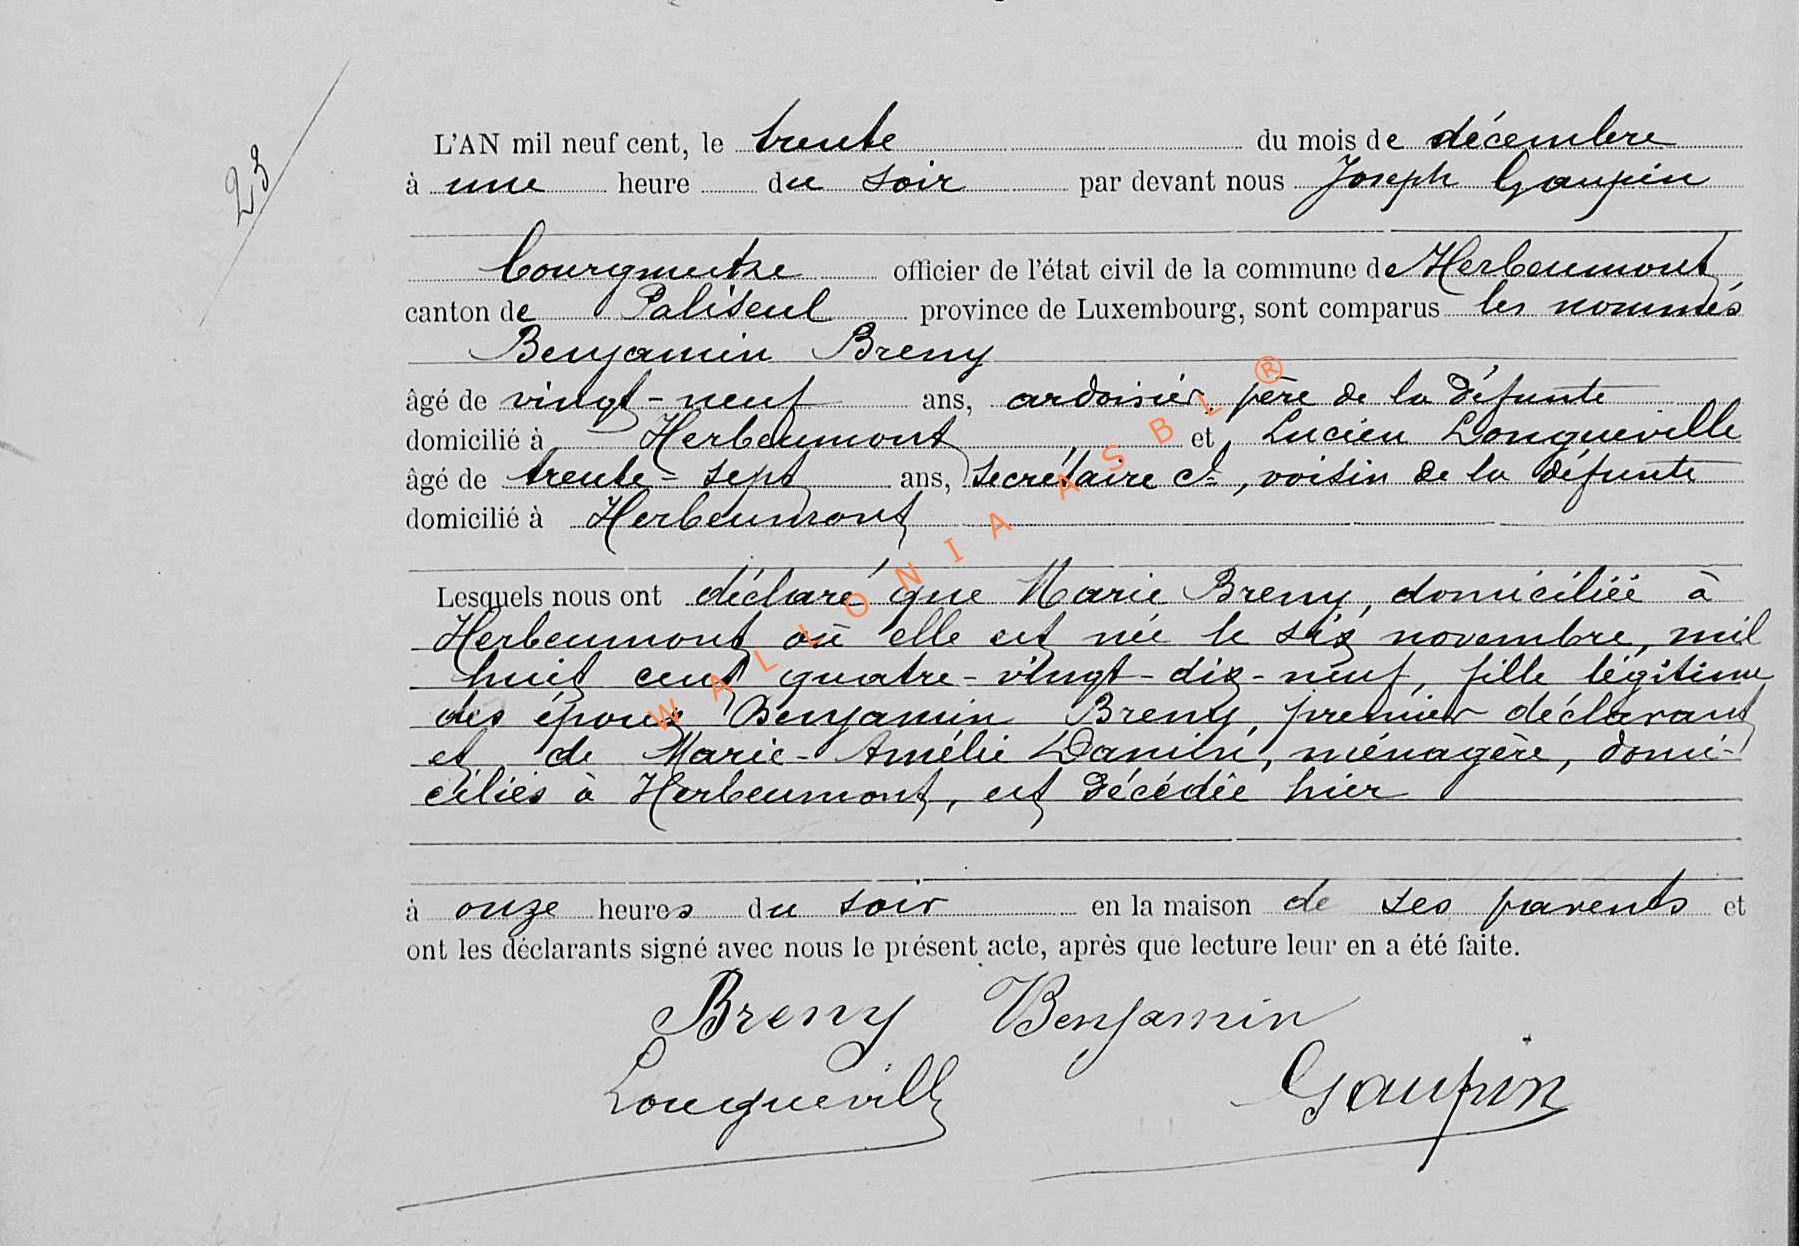 23
L'AN mil neuf cent, le trente du mois de décembre
à une heure du soir par devant nous Joseph Gaupin
bourgmestre officier de l'état civil de la commune de Herbeumont
canton de Paliseul province de Luxembourg, sont comparus les nommés
Benjamin Breny
âgé de vingt-neuf ans, ardoisier, père de la défunte
domicilié à Herbeumont et Lucien Longueville
âgé de trente-sept ans, secrétaire cl, voisin de la défunte
domicilié à Herbeumont
Lesquels nous ont déclaré que Marie Breny, domiciliée à
Herbeumont où elle est née le six novembre, mil
huit cent quatre-vingt-dix-neuf, fille légitime
des époux Benjamin Breny, premier déclarant
et de Marie-Amélie, ménagère, domi-
ciliés à Herbeumont, est décédée hier
à onze heures du soir en la maison de ses parents et
ont les déclarants signé avec nous le présent acte, après que lecture leur en a été faite.
Breny Benjamin
Longueville Gaupin
WALLONIA ASBL ®